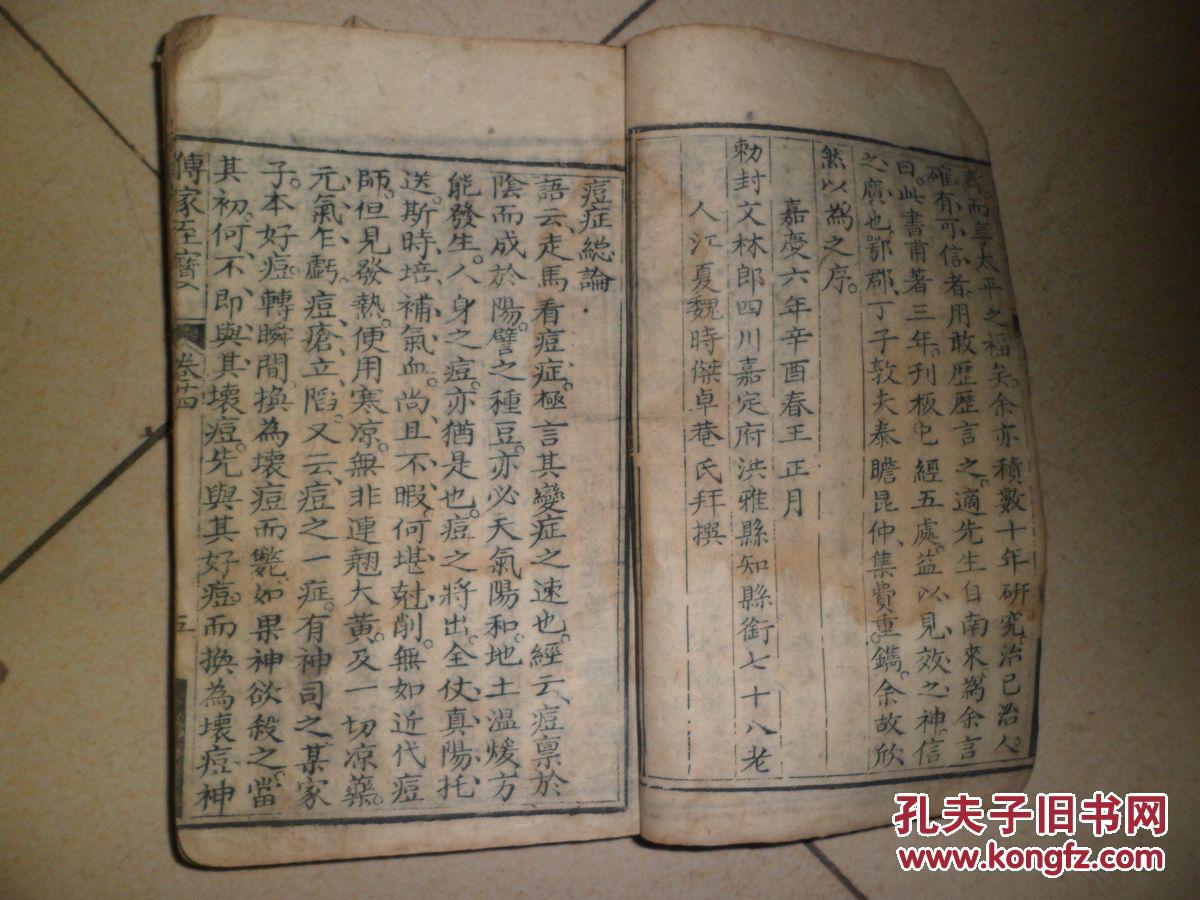 而享太平之福矣。余亦積數十年研究。治己治人。
確有可信者。用敢歷歷言之。適先生自南來。為余言
曰。此書甫著三年。刊板已經五處。益以見效之神。信
之廣也。鄂郡丁子敦夫泰瞻昆仲。集費重鐫。余故欣
然以為之序。
嘉慶六年辛酉春王正月
勅封文林郎四川嘉定府洪雅縣知縣銜七十八老
人江夏魏時傑卓菴氏拜撰
痘症總論
語云、走馬看痘症。極言其變症之速也。經云、痘禀於
陰而成於陽。譬之種豆。亦必天氣陽和。地土溫煖。方
能發生。人身之痘。亦猶是也。痘之將出。全仗真陽托
送。斯時培補氣血。尚且不暇。何堪尅削。無如近代痘
師。但見發熱。便用寒凉。無非連翹大黃。及一切凉藥。
元氣乍虧。痘瘡立陷。又云、痘之一症。有神司之。某家
子。本好痘。轉瞬間換為壞痘而斃。如果神欲殺之。當
其初。何不即與其壞痘。先與其好痘。而換為壞痘。神
傳家至寶 卷十四 五
孔夫子旧书网
www.kongfz.com